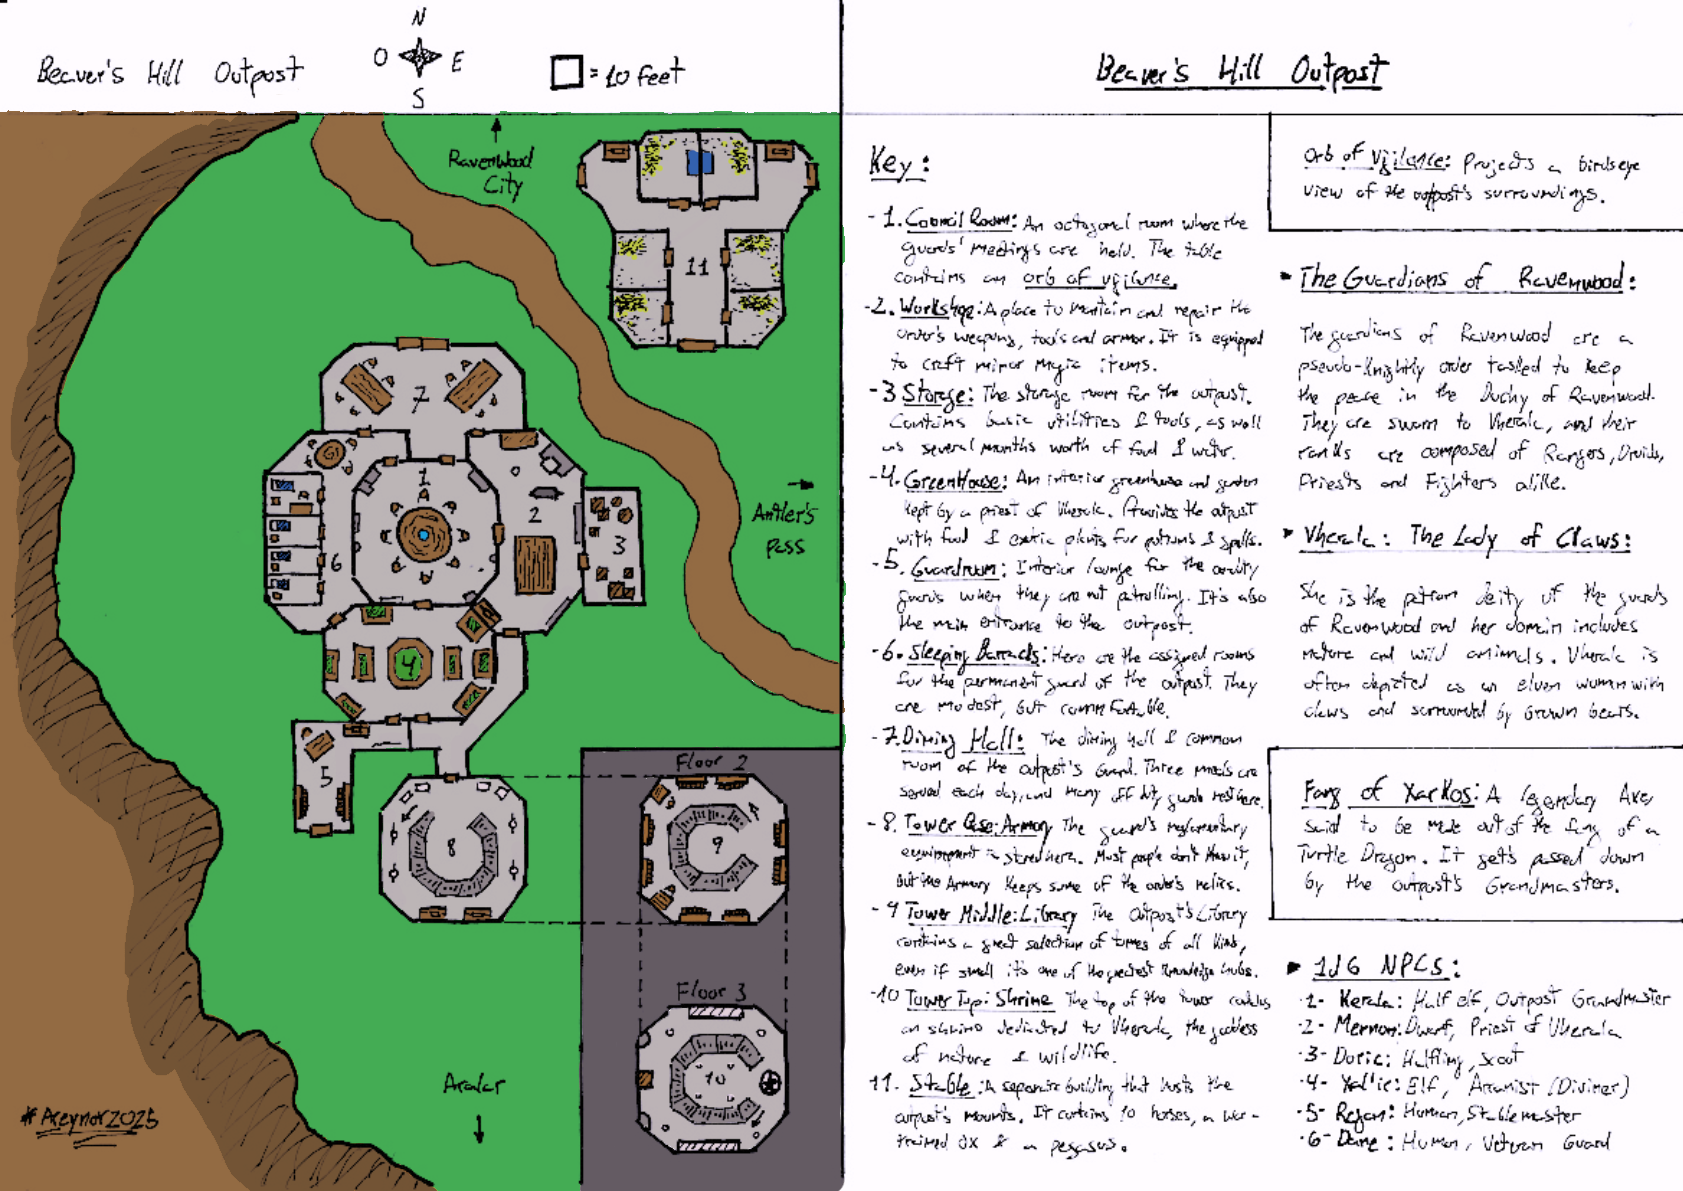 Beaver's Hill Outpost
N
O E
S
= 10 feet
Ravenwood
City
11
7
1
2
3
6
4
5
8
Antler's
pass
Floor 2
9
Floor 3
10
Aralar
#Areynor2025
Beaver's Hill Outpost
Key:
-1. Council Room: An octagonal room where the
guards' meetings are held. The table
contains an orb of vigilance.
-2. Workshop: A place to maintain and repair the
order's weapons, tools and armor. It is equipped
to craft minor magic items.
-3 Storage: The storage room for the outpost.
Contains basic utilities & tools, as well
as several months worth of food & water.
-4. GreenHouse: An interior greenhouse and garden
kept by a priest of Vherala. Provides the outpost
with food & exotic plants for potions & spells.
-5. Guardroom: Interior lounge for the
guards when they are not patrolling. It's also
the main entrance to the outpost.
-6. Sleeping Barracks: Here are the assigned rooms
for the permanent guard of the outpost. They
are modest, but comfortable.
-7. Dining Hall: The dining hall & common
room of the outpost's guard. Three meals are
served each day, and many off duty guards rest here.
-8. Tower Base: Armory The guard's
equipment is stored here. Most people don't know it,
but the Armory keeps some of the order's relics.
-9 Tower Middle: Library The outpost's Library
contains a great selection of tomes of all kinds,
even if small it's one of the greatest knowledge hubs.
-10 Tower Top: Shrine The top of the tower
an shrine dedicated to Vherala, the goddess
of nature & wildlife.
11. Stable: A separate building that hosts the
outpost's mounts. It contains 10 horses, a war-
trained ox & a pegasus.
Orb of Vigilance: Projects a birdseye
view of the outpost's surroundings.
The Guardians of Ravenwood:
The guardians of Ravenwood are a
pseudo-knightly order tasked to keep
the peace in the Duchy of Ravenwood.
They are sworn to Vherala, and their
ranks are composed of Rangers, Druids,
Priests and Fighters alike.
Vherala: The Lady of Claws:
She is the patron deity of the guards
of Ravenwood and her domain includes
nature and wild animals. Vherala is
often depicted as an elven woman with
claws and surrounded by brown bears.
Fang of Xarkos: A legendary Axe
said to be made out of the fang of a
Turtle Dragon. It gets passed down
by the outpost's Grandmasters.
1d6 NPCs:
-1- Kerala: Half elf, Outpost Grandmaster
-2- Mernon: Dwarf, Priest of Vherala
-3- Doric: Halfling, scout
-4- Xallic: Elf, Arcanist (Diviner)
-5- Regan: Human, Stablemaster
-6- Dane: Human, Veteran Guard